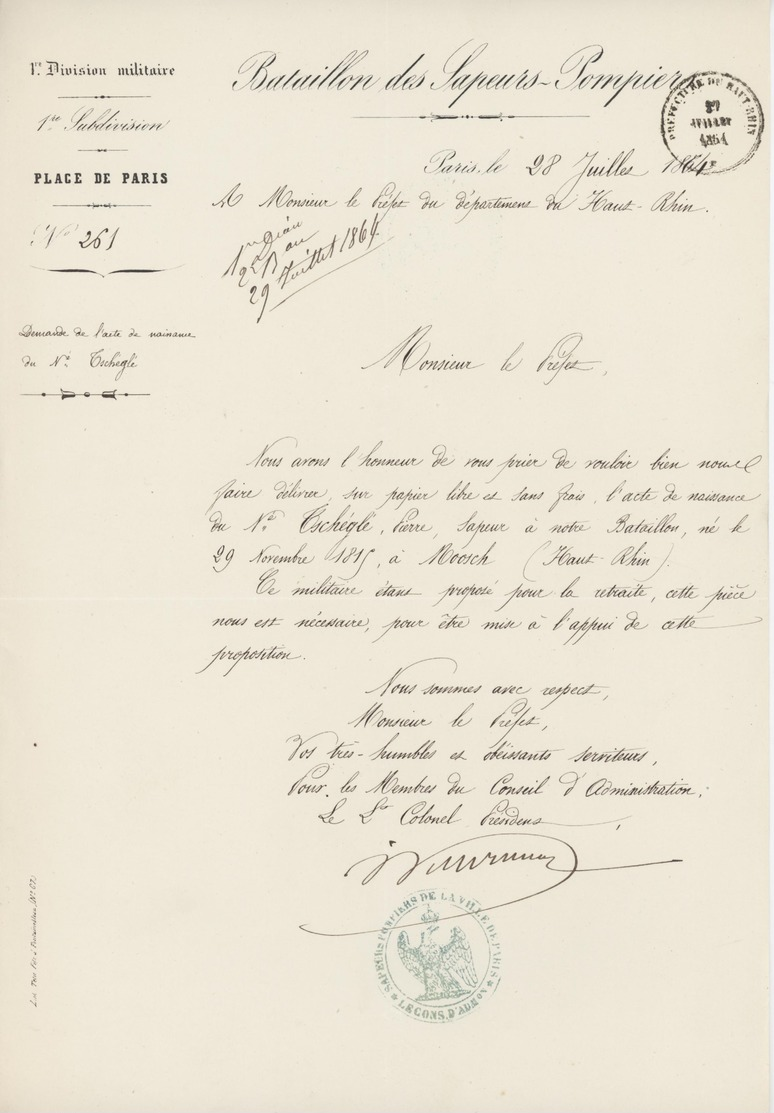 1re Division militaire
1re Subdivision
PLACE DE PARIS
No 261
Demande de l'acte de naissance
du No. Tschéglé
Bataillon des Sapeurs-Pompiers
PREFECTURE DU HAUT-RHIN
JUILLET
Paris, le 28 Juillet 1864
A Monsieur le Préfet du département du Haut-Rhin.
29 Juillet 1864
Monsieur le Préfet,
Nous avons l'honneur de vous prier de vouloir bien nous
faire délivrer, sur papier libre et sans frais, l'acte de naissance
du No. Tschéglé, Pierre, Sapeur à notre Bataillon, né le
29 Novembre 1815, à Moosch (Haut-Rhin).
Ce militaire étant proposé pour la retraite, cette pièce
nous est nécessaire, pour être mise à l'appui de cette
proposition.
Nous sommes avec respect,
Monsieur le Préfet,
Vos très-humbles et obéissants serviteurs,
Pour les Membres du Conseil d'Administration;
Le Lt Colonel Président,
SAPEURS POMPIERS DE LA VILLE DE PARIS
LE CONS. D'ADMON